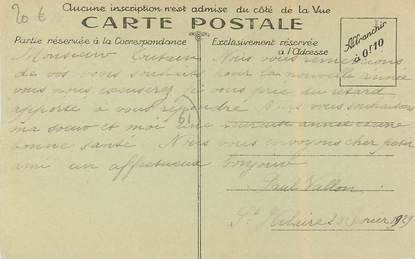 20 €
Aucune inscription n'est admise du côté de la Vue
CARTE POSTALE
Partie réservée à la Correspondance
Exclusivement réservée
à l'Adresse
Affranchir
à 0f10
Monsieur Nous vous remercions
de vos bons souhaits pour la nouvelle année
vous nous excuserez je vous prie du retard
apporté à vous répondre Nous vous souhaitons
ma soeur et moi une année et une
61
bonne santé Nous vous envoyons cher petit
ami un affectueux bonjour
Paul Vallon
St Hilaire 2 février 1929